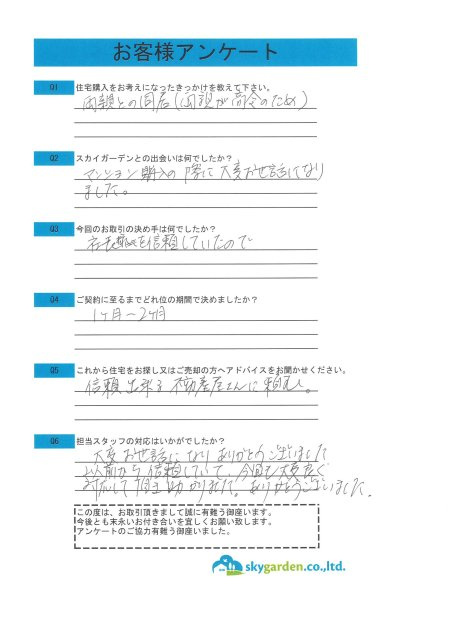 お客様アンケート
Q1 住宅購入をお考えになったきっかけを教えて下さい。
両親との同居(両親が高令のため)
Q2 スカイガーデンとの出会いは何でしたか?
マンション購入の際に大変お世話になり
ました。
Q3 今回のお取引の決め手は何でしたか?
を信頼していたので
Q4 ご契約に至るまでどれ位の期間で決めましたか?
1ヶ月~2ヶ月
Q5 これから住宅をお探し又はご売却の方へアドバイスをお聞かせください。
信頼出来る不動産屋さんに頼む。
Q6 担当スタッフの対応はいかがでしたか?
大変お世話になりありがとうございました
以前から信頼していて、今回も大変良く
対応して頂き助かりました。ありがとうございました。
この度は、お取引頂きまして誠に有難う御座います。
今後とも末永いお付き合いを宜しくお願い致します。
アンケートのご協力有難う御座いました。
skygarden.co.,ltd.